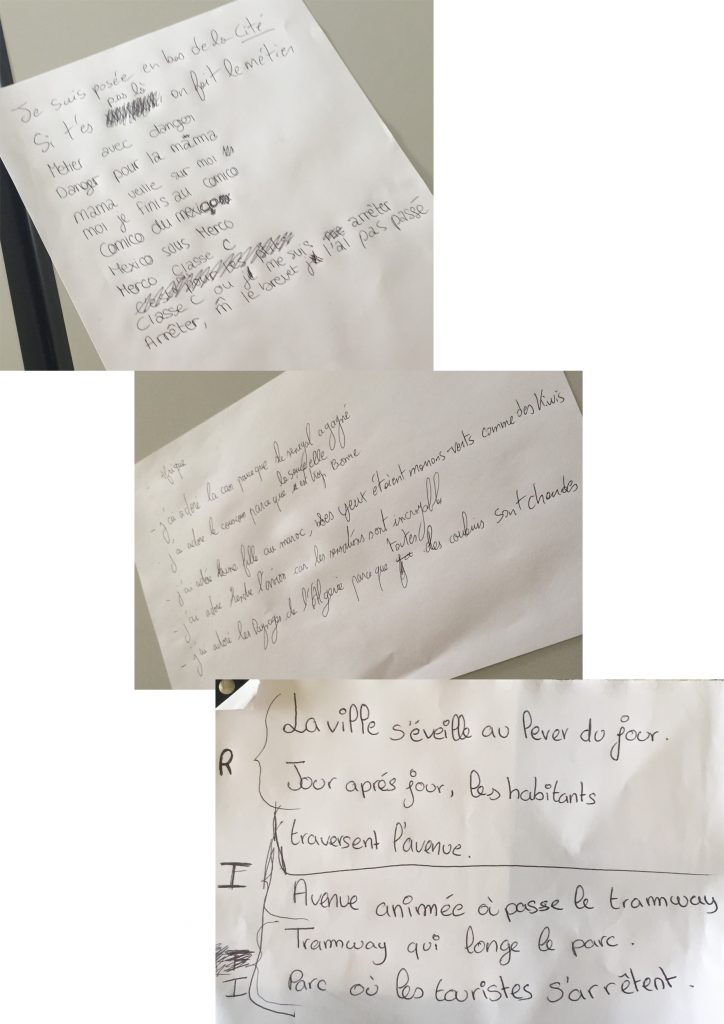 Je suis posée en bas de la Cité
Si t'es pas là on fait le métier
Metier avec danger
Danger pour la mama
mama veille sur moi
moi je finis au comico
Comico du mexico
Mexico sous Merco
Merco Classe C
Classe C ou je me suis arrêter
Arrêter, le brevet j l'ai pas passé
- Afrique
- j'ai adoré la can parce que le senegal a gagné
- j'ai adoré le couscous parce que la semoule elle Bonne
- j'ai adoré une fille au maroc, ses yeux étaient marrons-verts comme des Kiwis
- j'ai adoré l'avion car les sensations sont incroyable
- j'ai adoré les Paysages de l'Algerie parce que toutes des couleurs sont chaudes
R
La ville s'éveille au lever du jour.
Jour aprés jour, les habitants
traversent l'avenue.
I
Avenue animée à passe le tramway
Tramway qui longe le parc.
I
Parc où les touristes s'arrêtent.